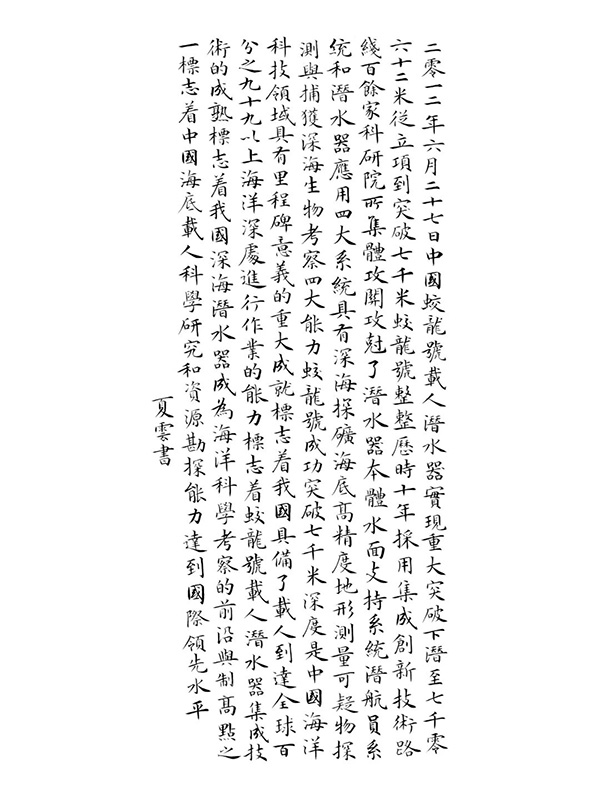 二零一二年六月二十七日中國蛟龍號載人潛水器實現重大突破下潛至七千零
六十二米從立項到突破七千米蛟龍號整整歷時十年採用集成創新技術路
綫百餘家科研院所集體攻關攻尅了潛水器本體水面支持系統潛航員系
統和潛水器應用四大系統具有深海探礦海底高精度地形測量可疑物探
測與捕獲深海生物考察四大能力蛟龍號成功突破七千米深度是中國海洋
科技領域具有里程碑意義的重大成就標志着我國具備了載人到達全球百
分之九十九以上海洋深處進行作業的能力標志着蛟龍號載人潛水器集成技
術的成熟標志着我國深海潛水器成為海洋科學考察的前沿與制高點之
一標志着中國海底載人科學研究和資源勘探能力達到國際領先水平
夏雲書